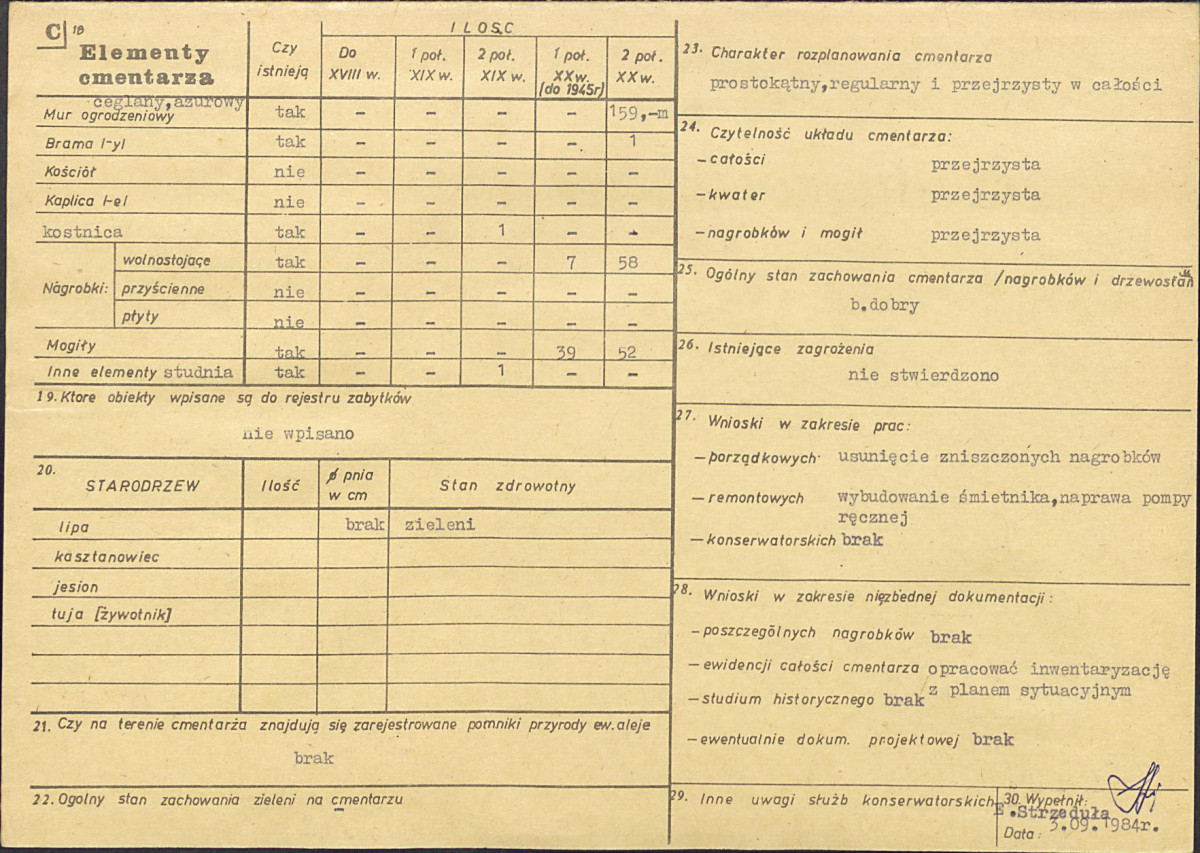 C 18
Elementy
cmentarza
Czy
istnieją
ILOŚC
Do
XVIII w.
1 poł.
XIX w.
2 poł.
XIX w.
1 poł.
XX w.
(do 1945r)
2 poł.
XX w.
ceglany,ażurowy
Mur ogrodzeniowy tak – – – – 159,–m
Brama /-y/ tak – – – – 1
Kościół nie – – – – –
Kaplica /-e/ nie – – – – –
kostnica tak – – 1 – –
Nagrobki:
wolnostojące tak – – – 7 58
przyścienne nie – – – – –
płyty nie – – – – –
Mogiły tak – – – 39 52
Inne elementy studnia tak – – 1 – –
19. Ktore obiekty wpisane są do rejestru zabytków
nie wpisano
20.
STARODRZEW Ilość ø pnia
w cm
Stan zdrowotny
lipa brak zieleni
kasztanowiec
jesion
tuja [żywotnik]
21. Czy na terenie cmentarza znajdują się zarejestrowane pomniki przyrody ew. aleje
brak
22. Ogolny stan zachowania zieleni na cmentarzu
23. Charakter rozplanowania cmentarza
prostokątny,regularny i przejrzysty w całości
24. Czytelność układu cmentarza:
– całości przejrzysta
– kwater przejrzysta
– nagrobków i mogił przejrzysta
25. Ogólny stan zachowania cmentarza /nagrobków i drzewostan
b.dobry
26. Istniejące zagrożenia
nie stwierdzono
27. Wnioski w zakresie prac:
– porządkowych usunięcie zniszczonych nagrobków
– remontowych wybudowanie śmietnika,naprawa pompy
ręcznej
– konserwatorskich brak
28. Wnioski w zakresie niezbędnej dokumentacji:
– poszczególnych nagrobków brak
– ewidencji całości cmentarza opracować inwentaryzację
z planem sytuacyjnym
– studium historycznego brak
– ewentualnie dokum. projektowej brak
29. Inne uwagi służb konserwatorskich
30. Wypełnił:
E.Strzeduła
Data: 3.09.1984r.